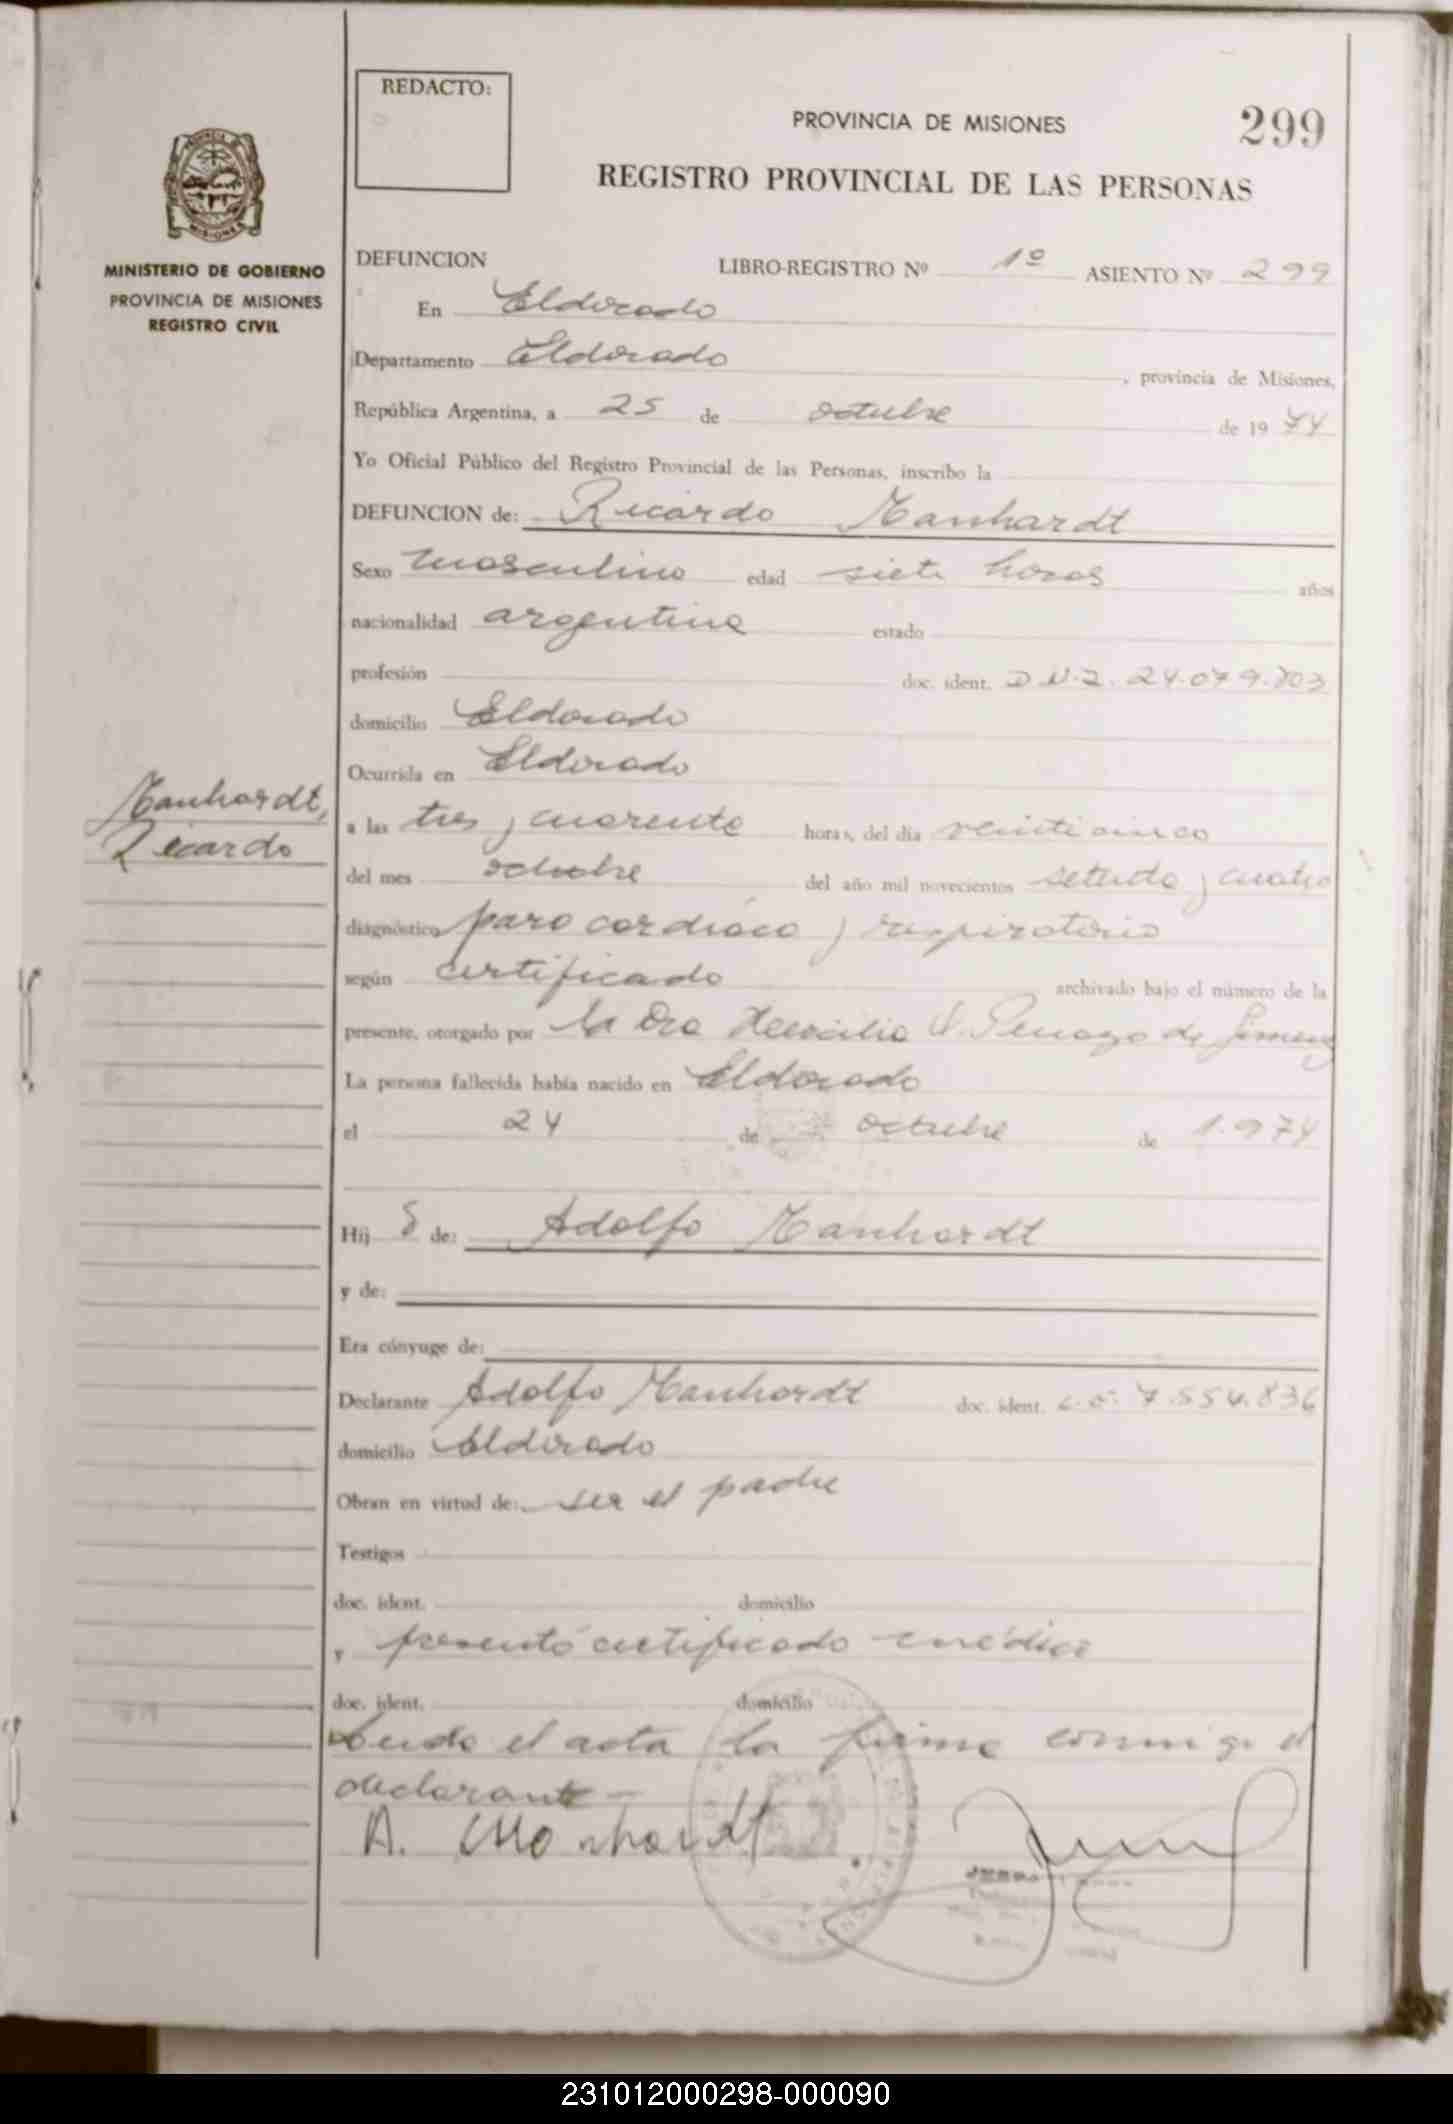 REDACTO:
PROVINCIA DE MISIONES
299
REGISTRO PROVINCIAL DE LAS PERSONAS
MINISTERIO DE GOBIERNO
PROVINCIA DE MISIONES
REGISTRO CIVIL
DEFUNCION LIBRO-REGISTRO Nº 1º ASIENTO Nº 299
En Eldorado
Departamento Eldorado, provincia de Misiones,
República Argentina, a 25 de octubre de 1974
Yo Oficial Público del Registro Provincial de las Personas, inscribo la
DEFUNCION de: Ricardo Manhardt
Sexo masculino edad siete horas años
nacionalidad argentina estado
profesión doc. ident. D.N.I. 24.079.703
domicilio Eldorado
Ocurrida en Eldorado
Manhardt,
Ricardo
a las tres y cuarenta horas, del día veinticinco
del mes octubre del año mil novecientos setenta y cuatro
diagnóstico paro cardíaco y respiratorio
según certificado archivado bajo el número de la
presente, otorgado por la Dra de
La persona fallecida había nacido en Eldorado
el 24 de octubre de 1.974
Hij o de: Adolfo Manhardt
y de:
Era cónyuge de:
Declarante Adolfo Manhardt doc. ident. 7.554.836
domicilio Eldorado
Obran en virtud de: ser el padre
Testigos
doc. ident. domicilio
y presentó certificado médico
doc. ident. domicilio
Leida el acta la firma conmigo el
declarante -
A. Manhardt
231012000298-000090